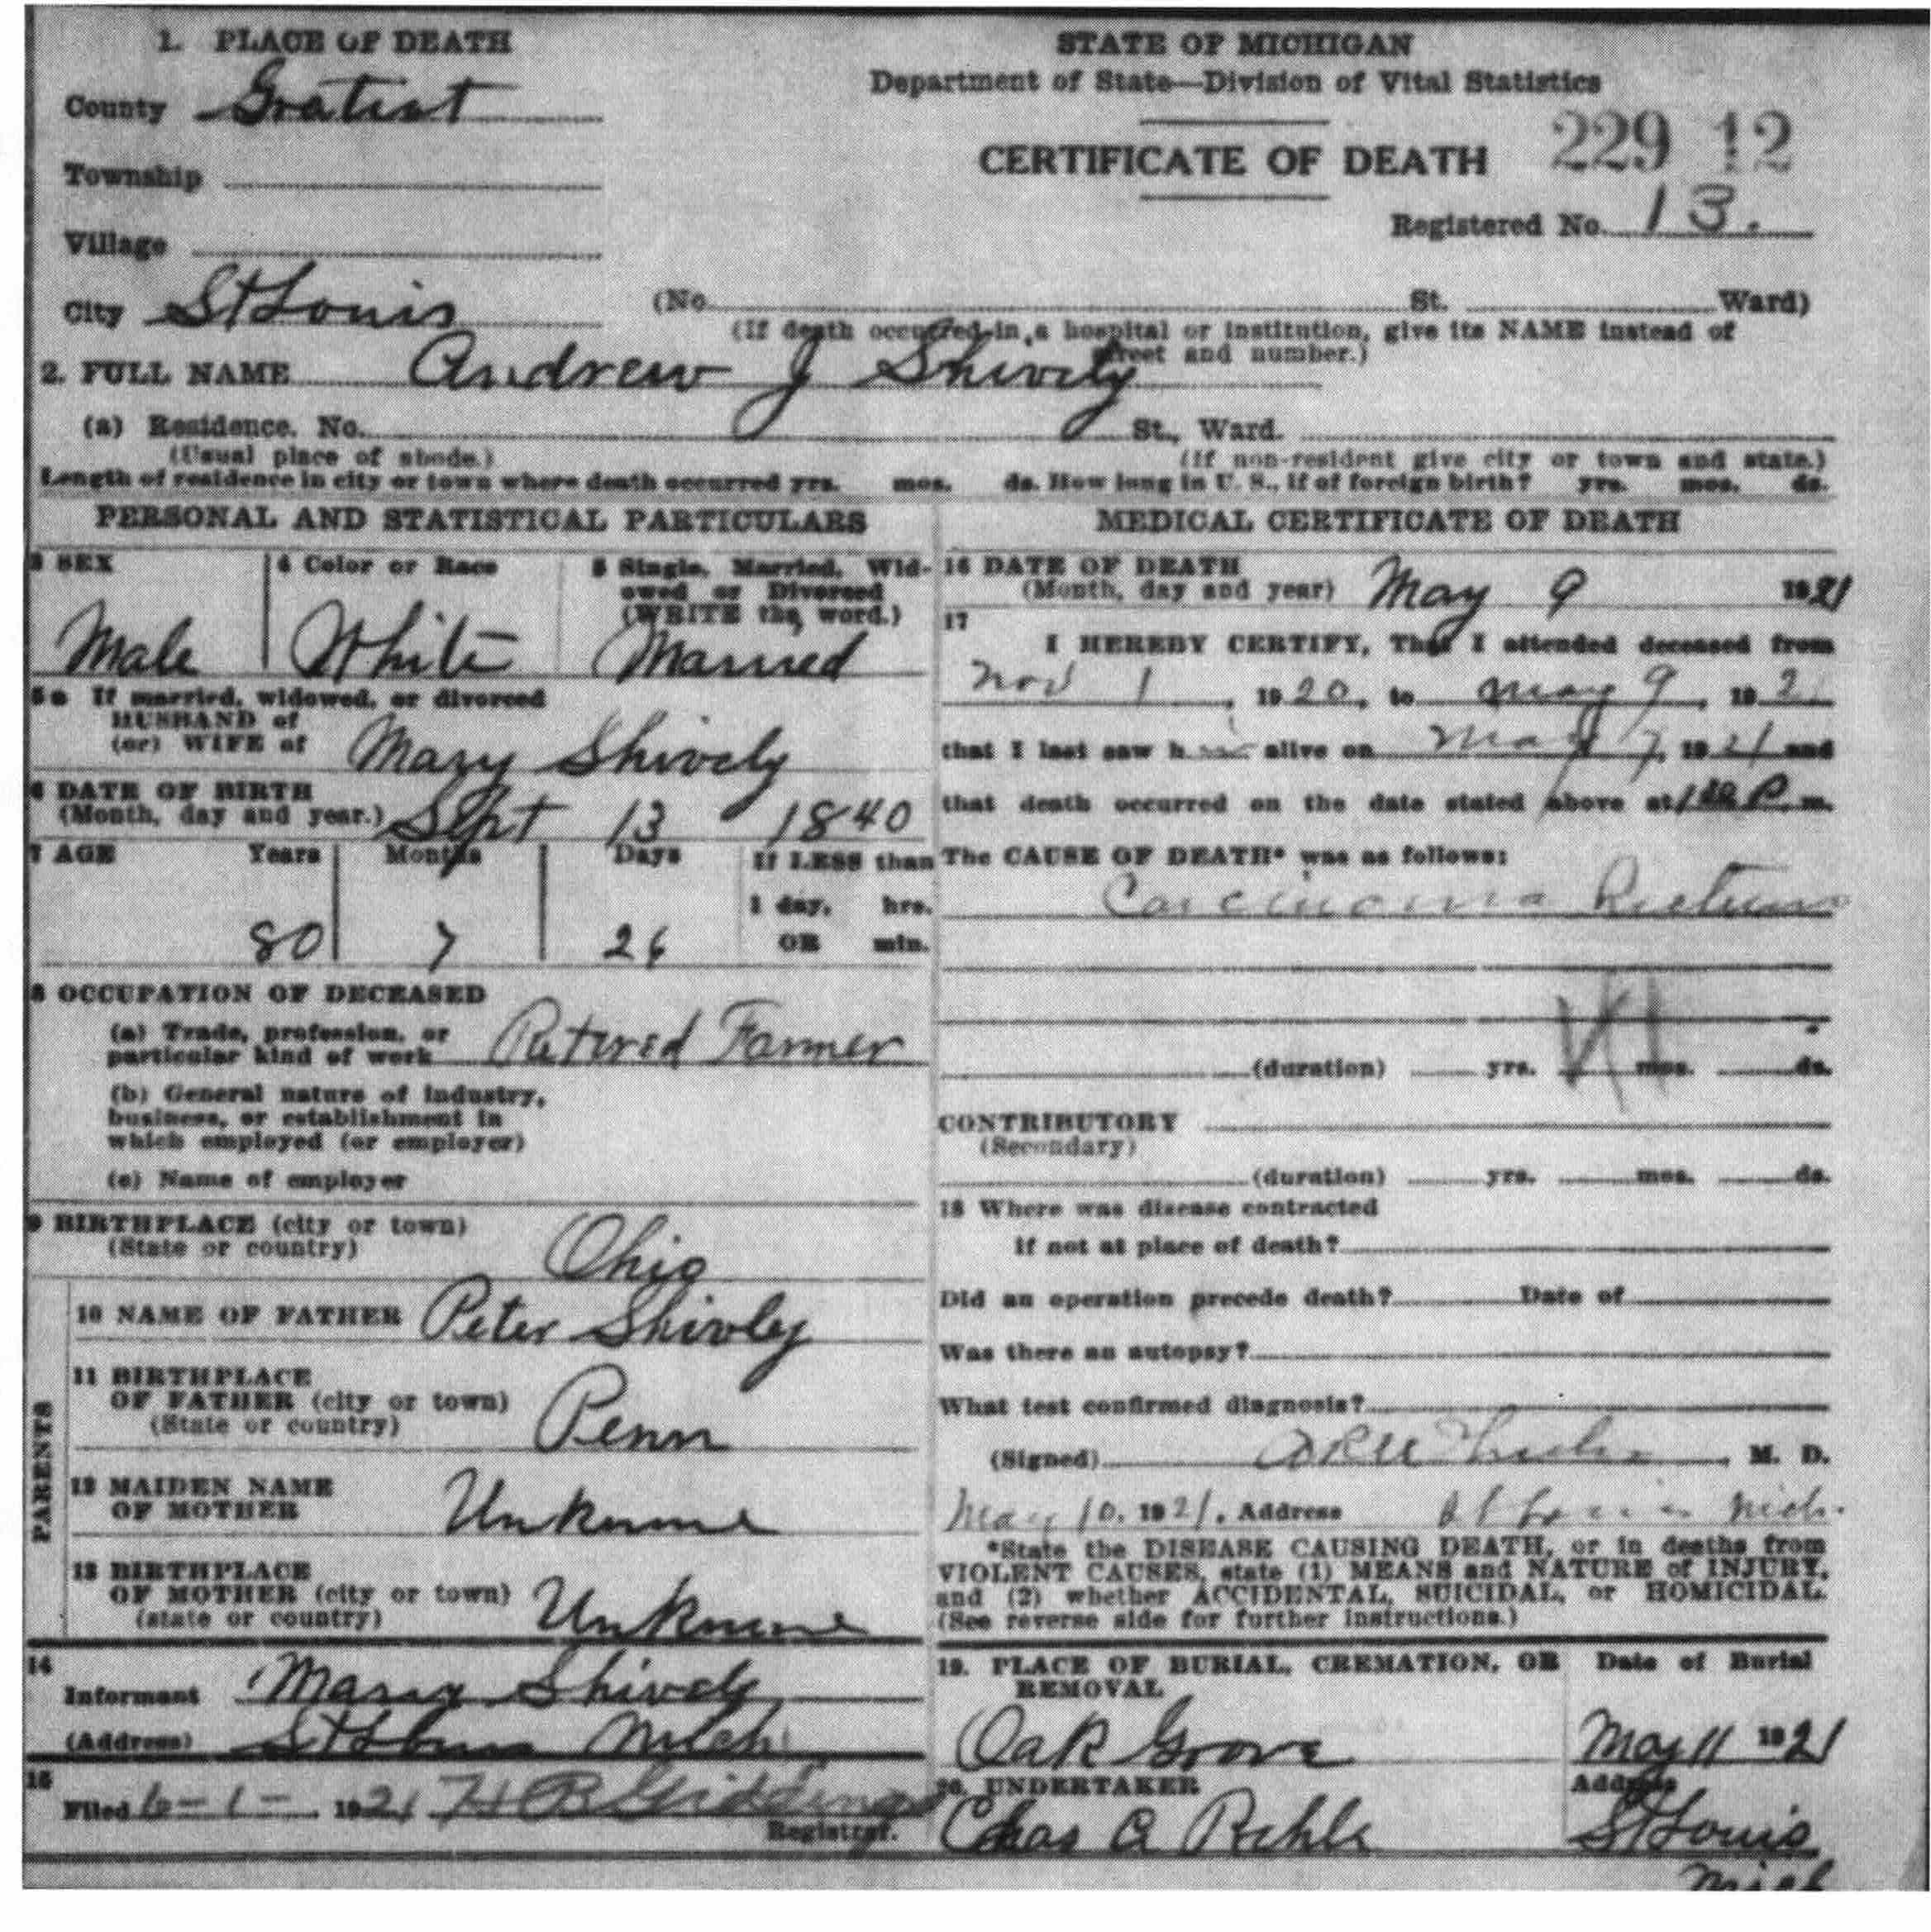 1. PLACE OF DEATH
County Gratiot
Township
Village
City St Louis
STATE OF MICHIGAN
Department of State—Division of Vital Statistics
CERTIFICATE OF DEATH
229 12
Registered No. 13.
(No. St. Ward)
(If death occurred in a hospital or institution, give its NAME instead of
street and number.)
2. FULL NAME Andrew J Shively
(a) Residence. No. St., Ward.
(Usual place of abode.) (If non-resident give city or town and state.)
Length of residence in city or town where death occurred yrs. mos. ds. How long in U. S., if of foreign birth? yrs. mos. ds.
PERSONAL AND STATISTICAL PARTICULARS
3 SEX
Male
4 Color or Race
White
5 Single, Married, Wid-
owed or Divorced
(WRITE the word.)
Married
5a If married, widowed, or divorced
HUSBAND of
(or) WIFE of Mary Shively
6 DATE OF BIRTH
(Month, day and year.) Sept 13 1840
7 AGE Years Months Days If LESS than
1 day, hrs.
80 7 26 OR min.
8 OCCUPATION OF DECEASED
(a) Trade, profession, or
particular kind of work Retired Farmer
(b) General nature of industry,
business, or establishment in
which employed (or employer)
(c) Name of employer
9 BIRTHPLACE (city or town)
(State or country) Ohio
PARENTS
10 NAME OF FATHER Peter Shivley
11 BIRTHPLACE
OF FATHER (city or town)
(State or country) Penn
12 MAIDEN NAME
OF MOTHER Unknowne
13 BIRTHPLACE
OF MOTHER (city or town)
(state or country) Unknowne
14
Informant Mary Shively
(Address) St Louis Mich
15
Filed 6-1-1921 H B Giddings
Registrar.
MEDICAL CERTIFICATE OF DEATH
16 DATE OF DEATH
(Month, day and year) May 9 1921
17
I HEREBY CERTIFY, That I attended deceased from
Nov 1, 1920, to May 9, 192
that I last saw h alive on May 7, 1921 and
that death occurred on the date stated above at P m.
The CAUSE OF DEATH* was as follows:
Carcinoma Rectum
(duration) yrs. mos. ds.
CONTRIBUTORY
(Secondary)
(duration) yrs. mos. ds.
18 Where was disease contracted
if not at place of death?
Did an operation precede death? Date of
Was there an autopsy?
What test confirmed diagnosis?
(Signed) , M. D.
May 10, 1921, Address St Louis Mich.
*State the DISEASE CAUSING DEATH, or in deaths from
VIOLENT CAUSES, state (1) MEANS and NATURE of INJURY,
and (2) whether ACCIDENTAL, SUICIDAL, or HOMICIDAL.
(See reverse side for further instructions.)
19. PLACE OF BURIAL, CREMATION, OR
REMOVAL
Oak Grove
Date of Burial
May 11 1921
20. UNDERTAKER
Chas A Rehle
Address
St Louis
Mich